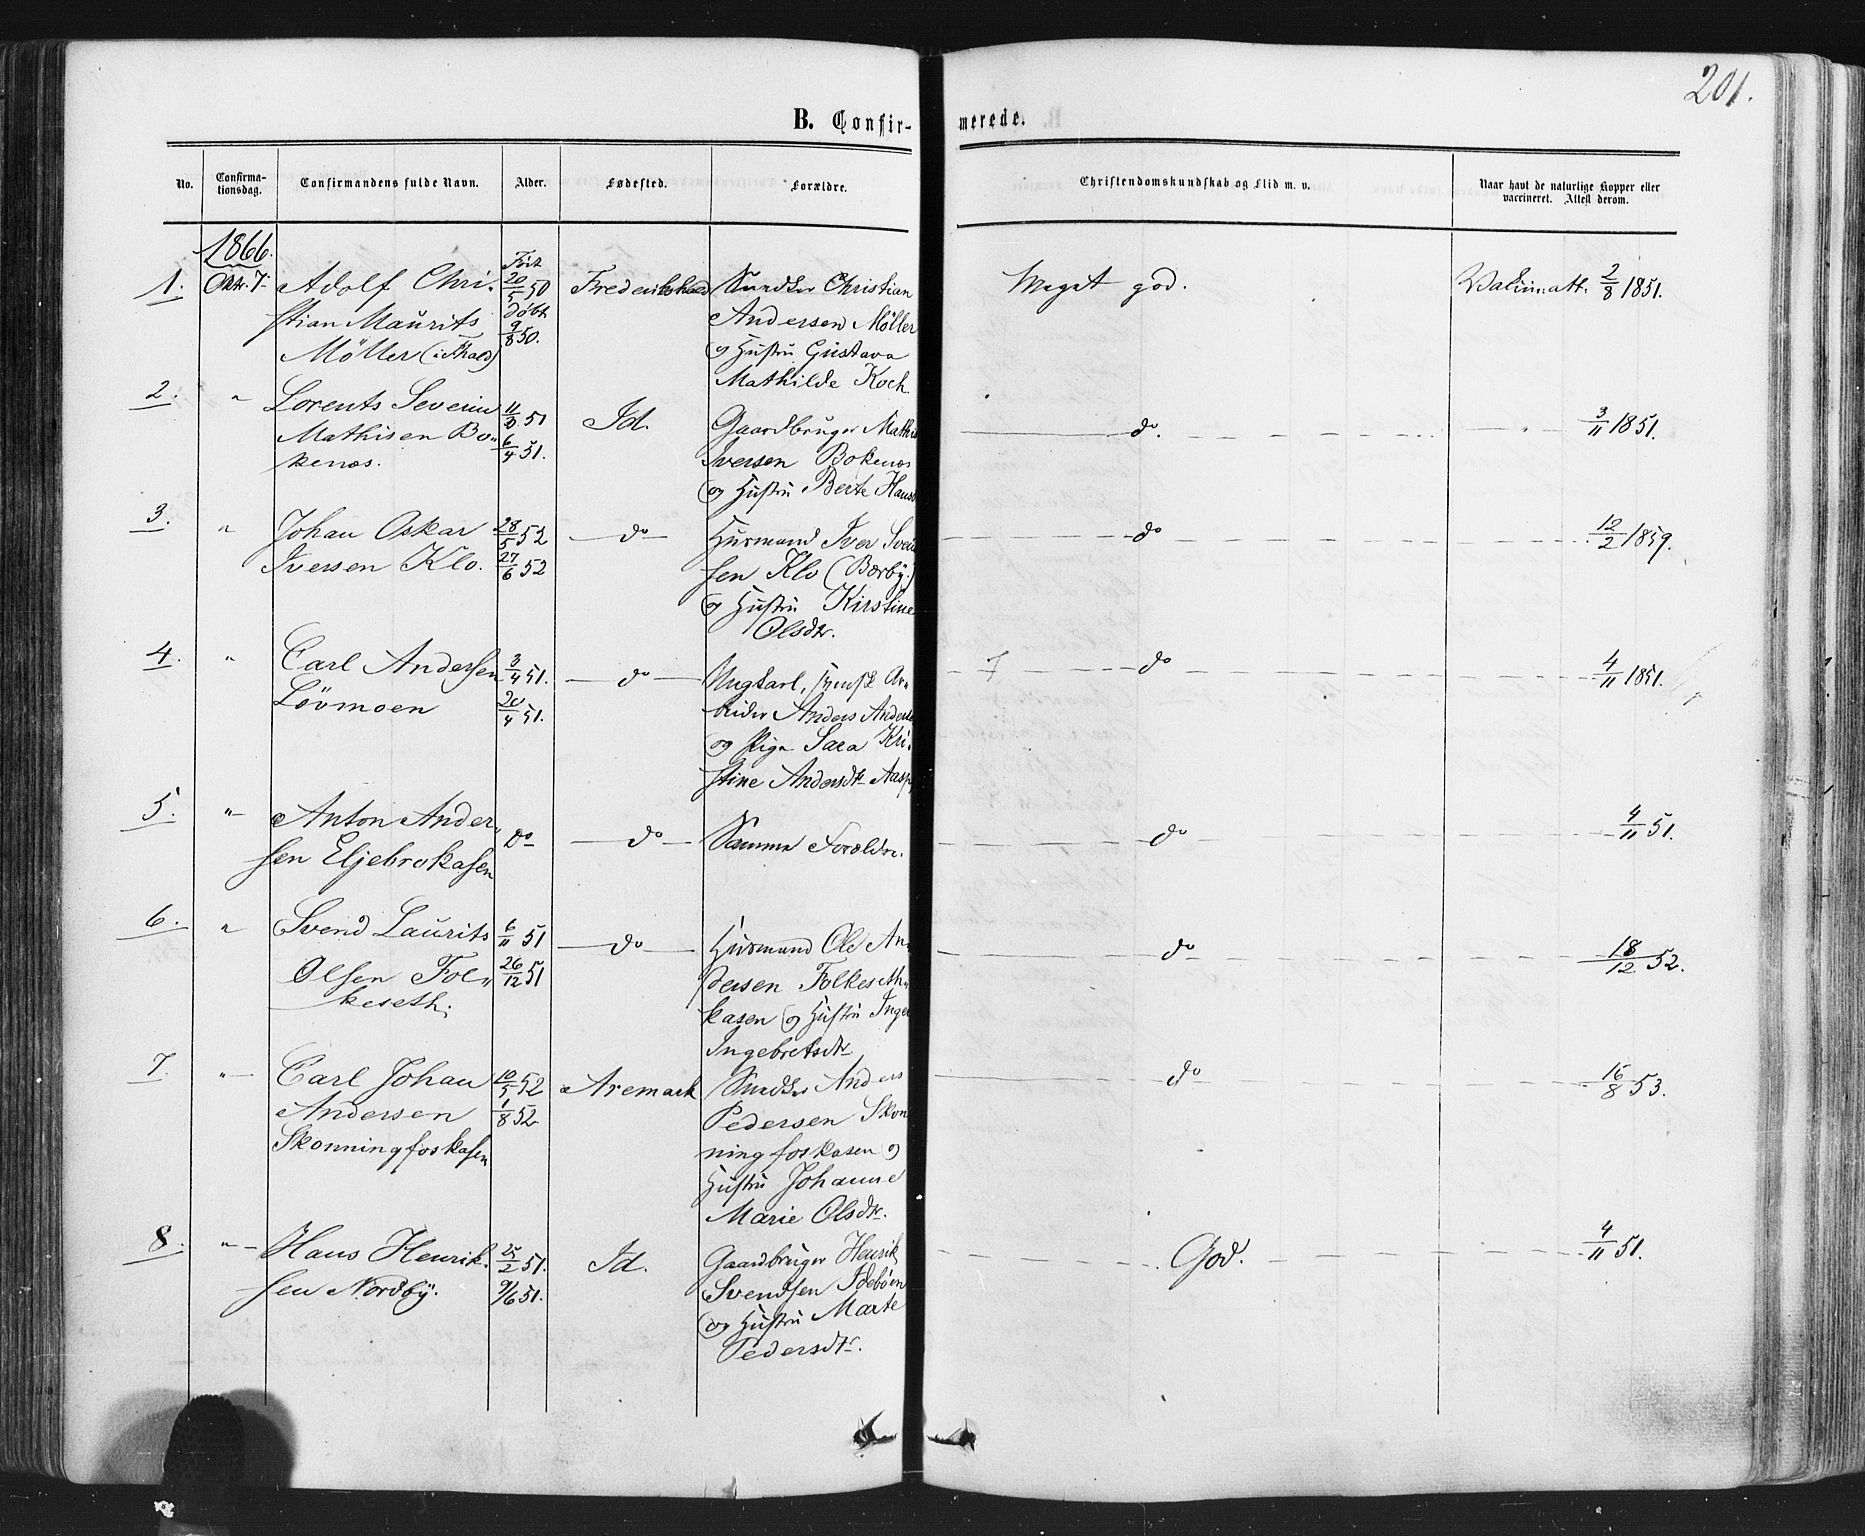 201.
B. Confirmerede.
No.
Confirmationsdag.
Confirmandens fulde Navn.
Alder.
Fødested.
Forældre.
Christendomskundskab og Flid m. v.
Naar havt de naturlige Kopper eller
vaccineret. Attest derom.
1866.
1. Oktr. 7. Adolf Chri- Født 20/5 50 Frederikshald Christian Meget god. Vakcin.att. 2/8 1851.
stian Maurits døbt Andersen Møller
Møller (i Fhald) 9/8 50. og Hustru Gustava
Mathilde Koch
2. " Lorents Severin 11/3 51 Id. Gaardbruger Mathis do. " 3/11 1851.
Mathisen Bo- 6/4 51. Iversen Bokenæs
kenæs. og Hustru Berte Hansd
3. " Johan Oskar 28/5 52 do Husmand Iver Svend do 12/2 1859.
Iversen Klo. 27/6 52 sen Klo (Bærby.)
og Hustru Kirstine
Olsdtr.
4. " Carl Andersen 3/4 51. do Ungkarl, svensk Ar- do 4/11 1851.
Lövmoen 20/4 51. beider Anders Anders
og Pige Sara Kri-
stine Andersdtr Aasp
5. " Anton Ander- do do Samme Forældre. do 4/11 51.
sen Eljebrokasen
6. " Svend Laurits 6/11 51 do Husmand Ole An- do 18/12 52.
Olsen Fol- 26/12 51 dersen Folkeseth-
keseth. kasen og Hustru Inger
Ingebretsdtr
7. " Carl Johan 10/5 52 Aremark Anders do 16/8 53.
Andersen 1/8 52 Pedersen Skon
Skonningfoskasen ningfoskasen og
Hustru Johanne
Marie Olsdtr.
8. " Hans Henrik- 25/2 51. Id. Gaardbruger Henrik God. 4/11 51.
sen Nordby. 9/6 51. Svendsen Idebøen
og Hustru Marte
Pedersdtr.